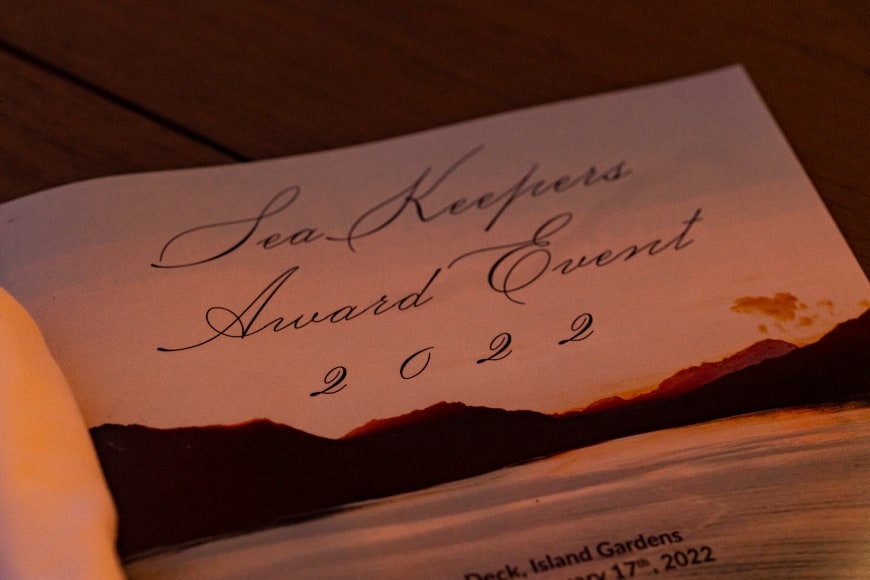 Sea Keepers
Award Event
2022
Deck, Island Gardens
17th, 2022